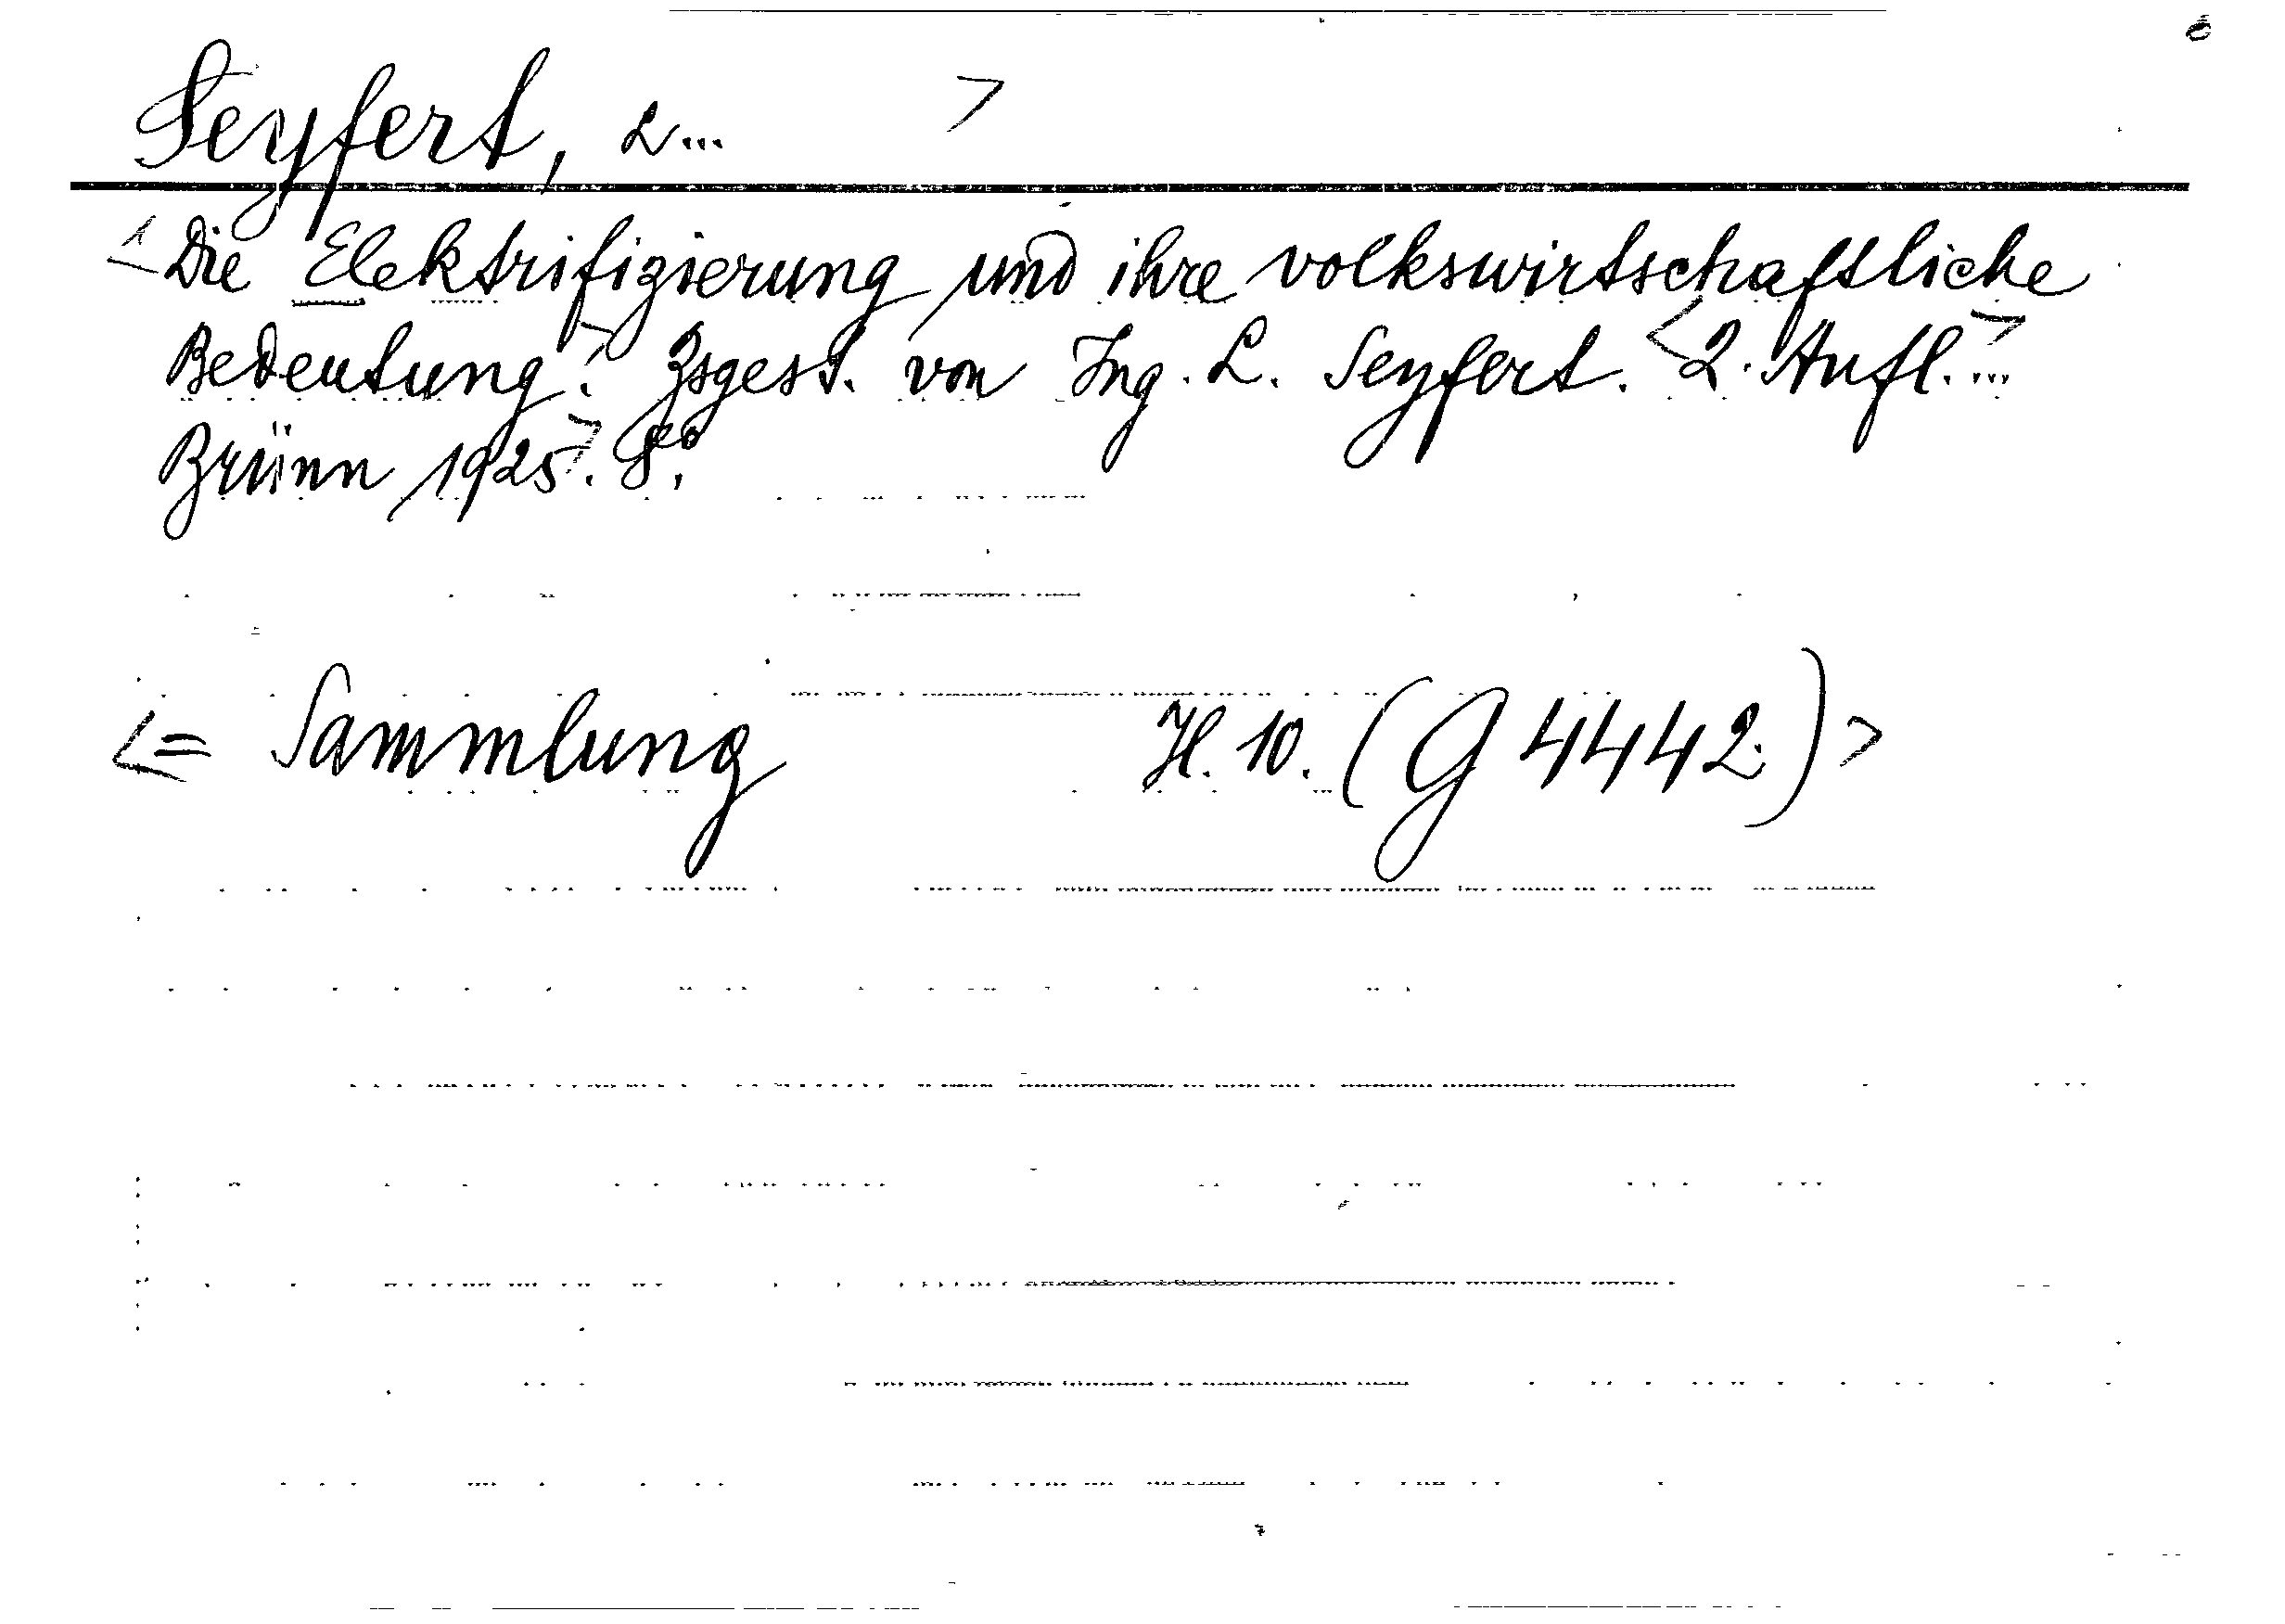 Seyfert, L... >
<1 Die Elektrifizierung und ihre volkswirtschaftliche
Bedeutung.> Zsgest. von Ing. L. Seyfert. <2. Aufl.>...
Brünn 1925>. 8°.
<= Sammlung H. 10. (G 4442)>